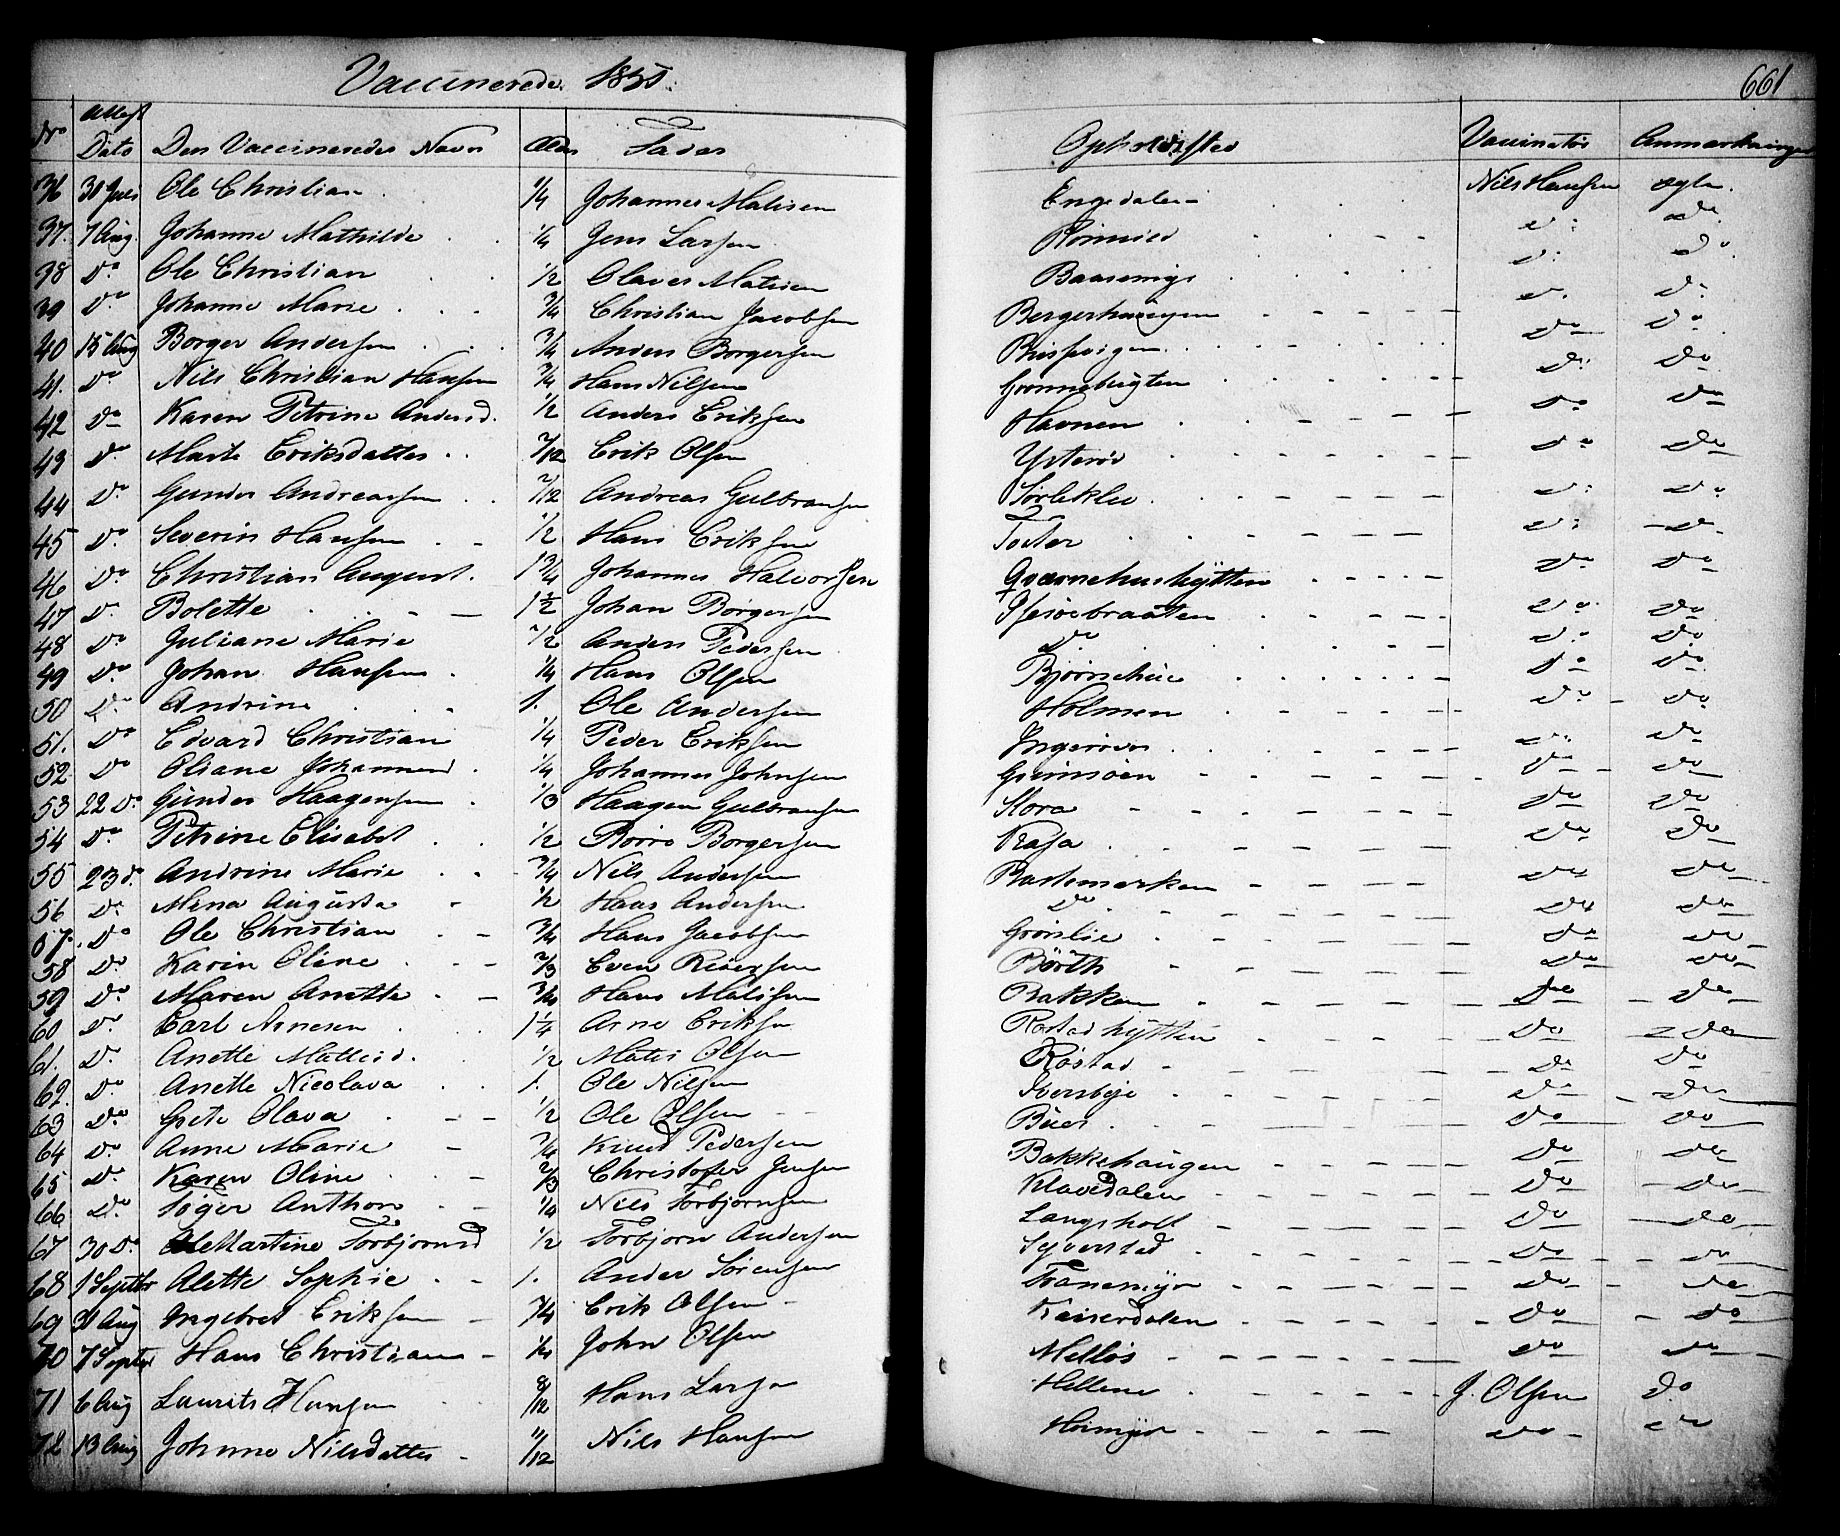 Vaccinerede 1850. 661
No Attest Dato Den Vaccineredes Navn Alder Fader Opholdssted Vaccinatør Anmærkninger
36 30 Juli Ole Christian 1/4 Johannes Matisen Engedalen Nils Hansen ægte
37. 7 Aug. Johanne Mathilde 1/4 Jens Larsen do do
38 Do Ole Christian 1/2 Olaves Matisen do Do
39 Do Johanne Marie 3/4 Christian Jacobsen Bergerhaugen do Do
40 15 Aug Borger Andersen 3/4 Anders Borgersen Do Do
41. Do Nils Christian Hansen 3/4 Hans Nilsen Grønnebugten Do Do
42 Do Karen Petrine Andersd. 1/2 Anders Eriksen Havnen Do Do
43 Do Marte Eriksdatter 7/12 Erik Olsen Ysterød Do Do
44 Do Gunder Andreassen 7/12 Andreas Gulbransen Sørlikleo Do Do
45 Do Severin Hansen 1/2 Hans Eriksen Tofter Do Do
46 Do Christian August 1 3/4 Johannes Halvorsen Qværnehushytten Do Do
47 Do Bolette 1 1/2 Johan Borgersen Do Do
48 Do Juliane Marie 1/2 Anders Pedersen Do Do Do
49 Do Johan Hansen 1/4 Hans Olsen Bjørnehue Do Do
50 Do Andrine 1. Ole Andersen Holmen Do Do
51. Do Edvard Christian 1/4 Peder Eriksen Ingerøen Do Do
52 Do Oliane Johannesd. 1/4 Johannes Johnsen Grimsøen Do Do
53 22 Do Gunder Haagensen 1/3 Haagen Gulbransen Kora Do Do
54 Do Petrine Elisabet 1/2 Børre Borgersen Krafa Do Do
55 23 d. Andrine Marie 3/4 Nils Andersen Bastemarken Do Do
56 Do Mina Augusta 1/2 Hans Andersen Do Do Do
57. Do Ole Christian 3/4 Hans Jacobsen Grønlie Do Do
58 Do Karin Oline 2/3 Even Reiersen Børth Do Do
59 Do Maren Anette 3/4 Hans Matisen Bakken Do Do
60 Do Carl Arnesen 1 1/4 Arne Eriksen Rostad hytten Do Do
61. Do Anette Matisd. 1/2 Matis Olsen Røstad Do Do
62. Do Anette Nicolava 1. Ole Nilsen Iversbye Do Do
63 Do Grete Olava 1/2 Ole Olsen Buer Do Do
64 Do Anne Marie 3/4 Knud Pedersen Bakkehaugen Do Do
65 Do Karen Oline 2/3 Christofer Jensen Klavedalen Do Do
66 Do Tøger Anthon 1/4 Nils Torbjørnsen Langsholt Do Do
67 30 Do Martine Torbjørnsd 1/2 Torbjørn Andersen Syverstad Do Do
68 1 Septbr Alette Sophie 1. Ander Sørensen Tranemyr Do Do
69 31 Aug Ingebret Eriksen 3/4 Erik Olsen Kaiserdalen Do Do
70 7 Septbr Hans Christian 1/4 John Olsen Melløs Do Do
71 6 Aug Laurits Hansen 8/12 Hans Larsen Hellene J. Olsen Do
72 13 Aug Johanne Nilsdatter 11/12 Nils Hansen Heimyr Do Do